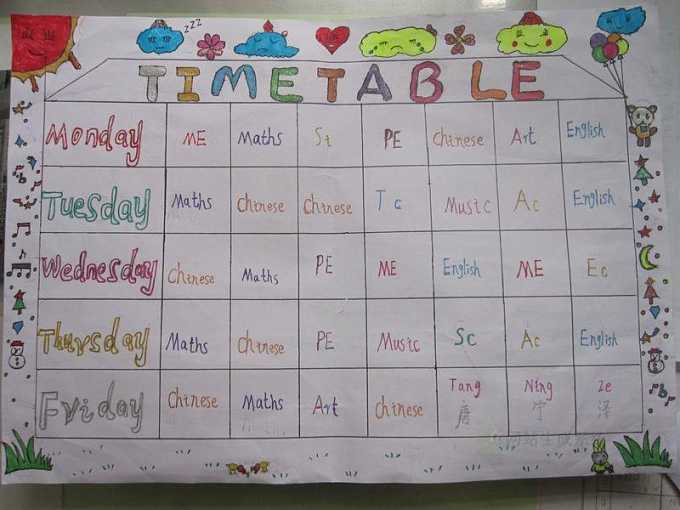 zzz
TIMETABLE
Monday ME Maths St PE Chinese Art English
Tuesday Maths Chinese Chinese Tc Music Ac English
Wednesday Chinese Maths PE ME English ME Ec
Thursday Maths Chinese PE Music Sc Ac English
Friday Chinese Maths Art Chinese Tang Ning Ze
唐 宁 泽